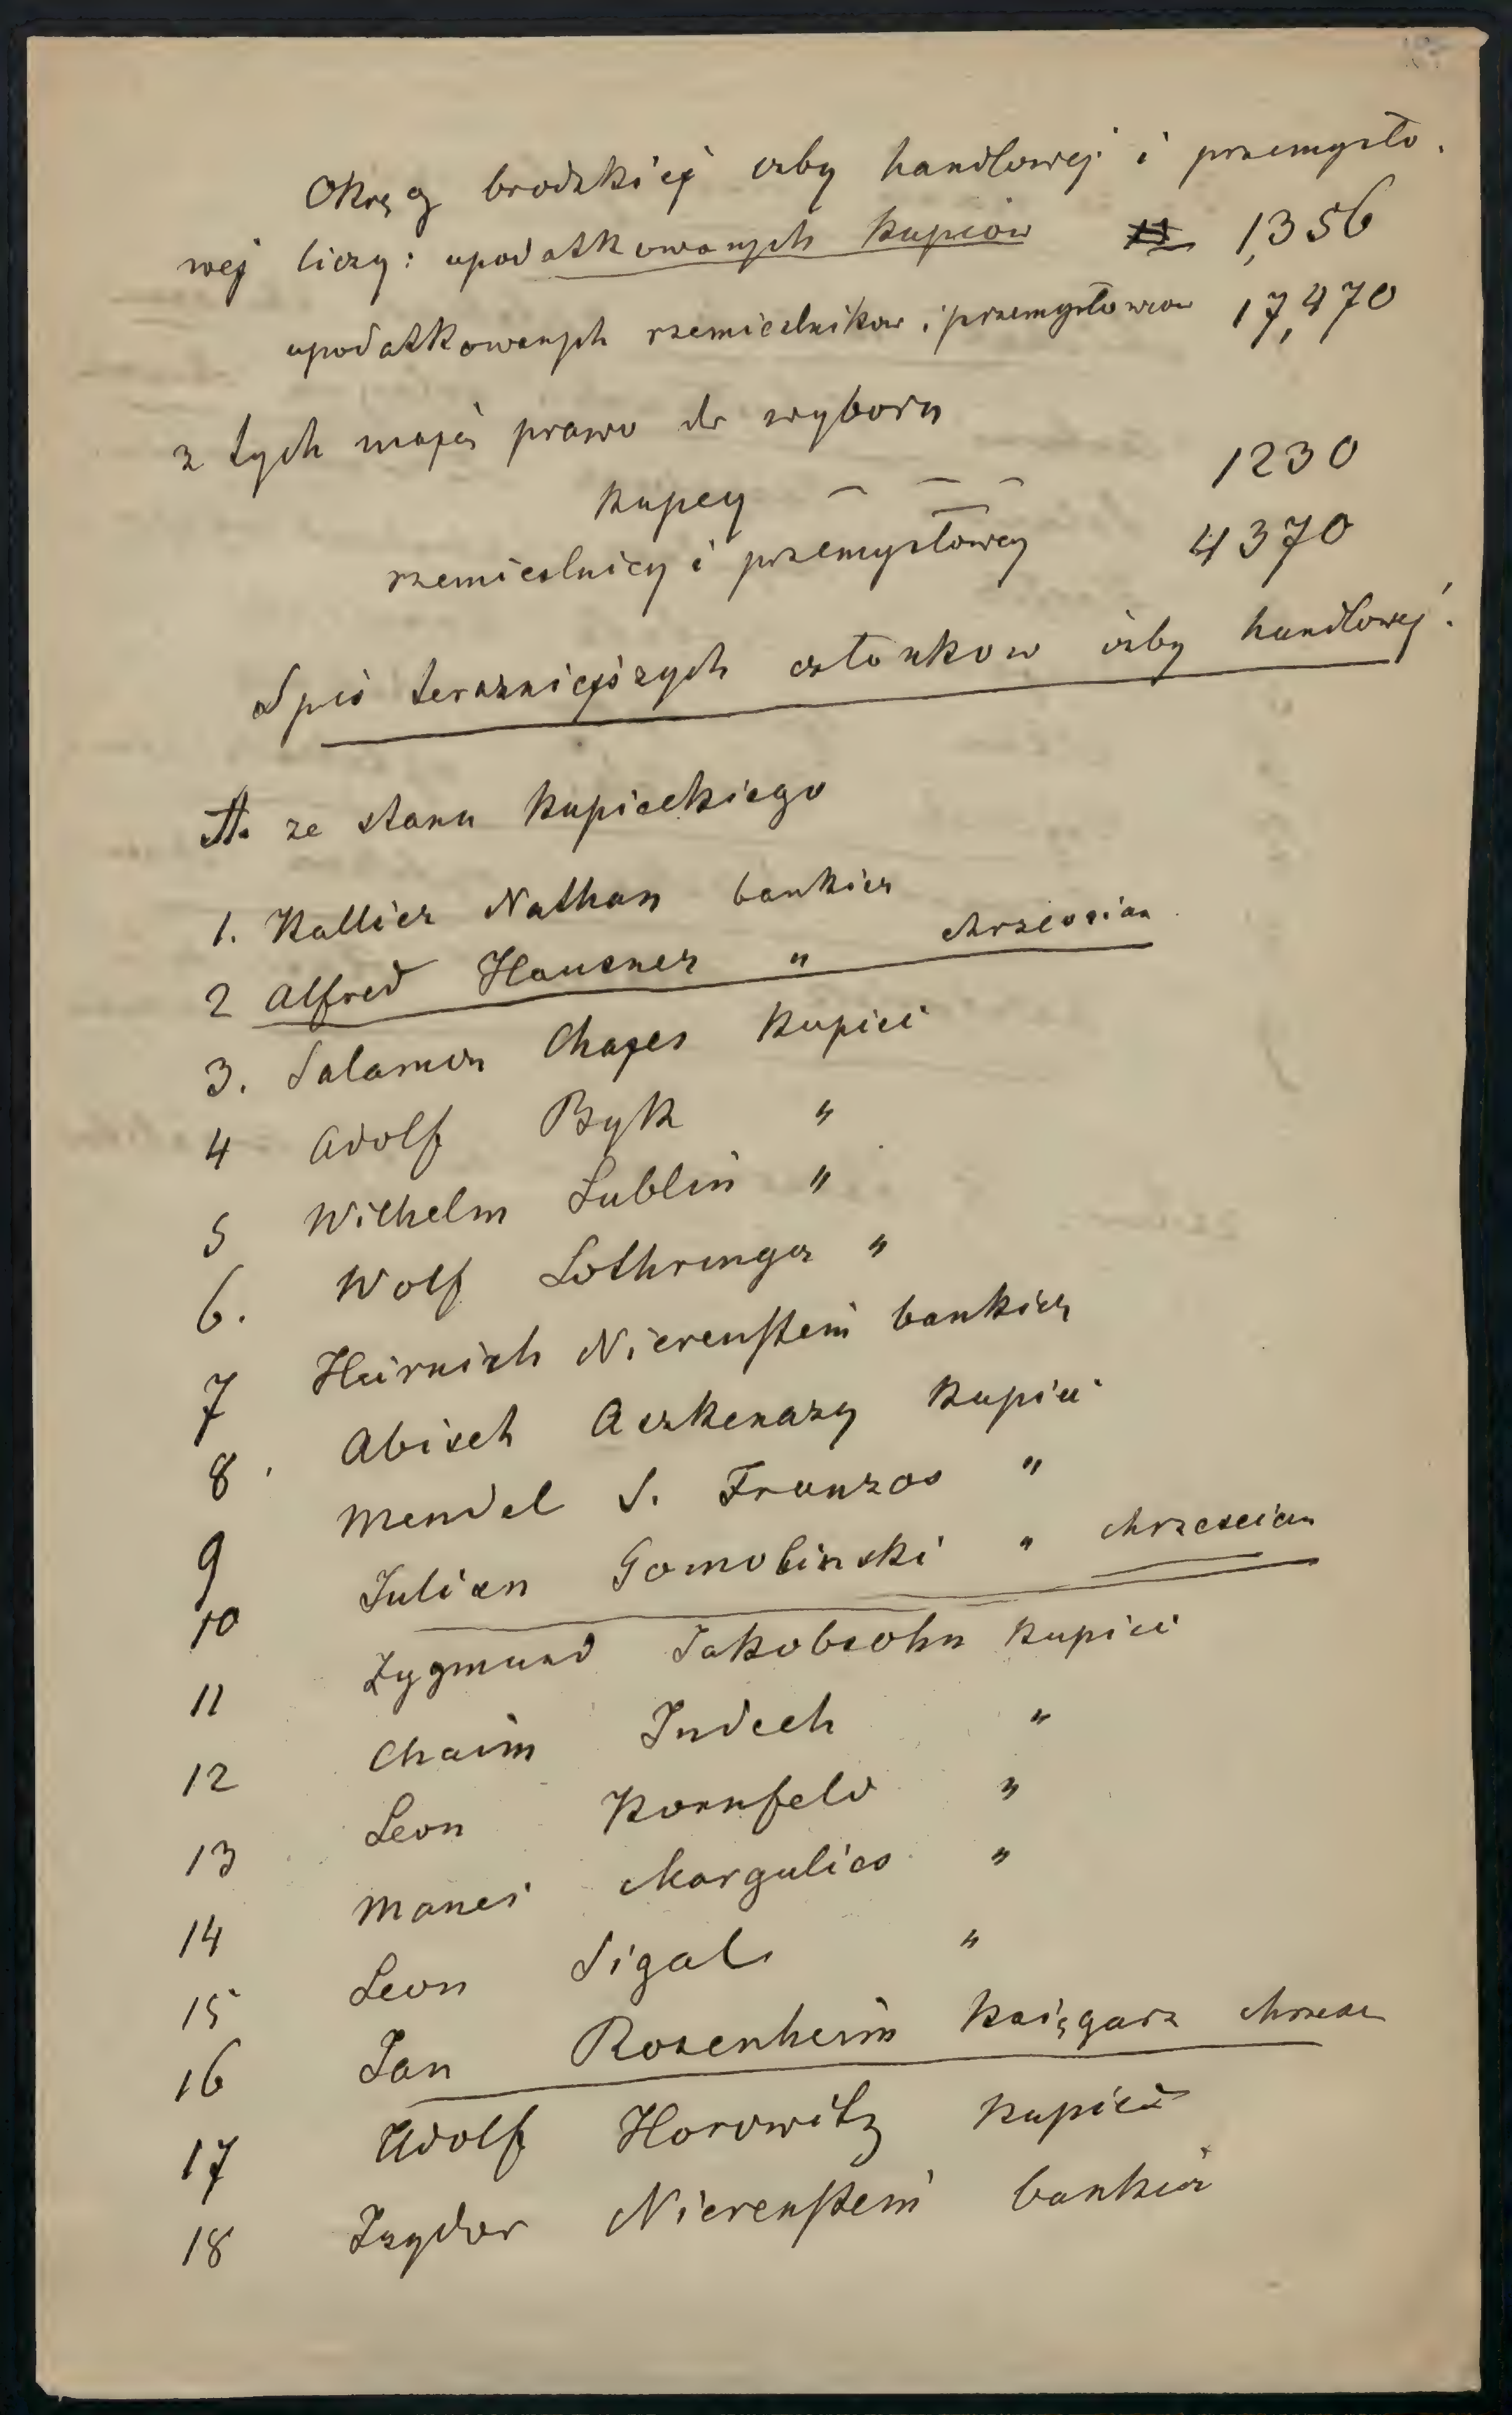 Okręg brodzkiej izby handlowej i przemysło-
wej liczy: upodatkowanych kupców 1,356
upodatkowanych rzemieslnikow i przemysłowcow 17,470
z tych mają prawo do wyboru
kupcy — — — 1230
rzemieslnicy i przemysłowcy 4370
Spis terazniejszych członkow izby handlowej.
A. ze stanu kupieckiego
1. Kallier Nathan bankier
2 Alfred Hausner " chrzescian
3. Salamon Chajes kupiec
4 Adolf Byk "
5 Wilhelm Lublin "
6. Wolf Lothringer "
7 Heinrich Nierenstein bankier
8. Abisch Aszkenazy kupiec
9 Mendel S. Franzos "
10 Julian Gomolinski " chrzescian
11 Zygmund Jakobsohn kupiec
12 Chaim Judech "
13 Leon Kornfeld "
14 Manes Margulies "
15 Leon Sigal "
16 Jan Rosenheim księgarz chrzesc
17 Adolf Horowitz kupiec
18 Izydor Nierenstein bankier